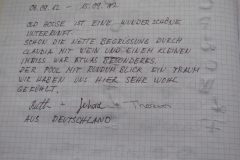 08.09.12 - 15.09.12
OLD HOOSE IST EINE WUNDERSCHÖNE
UNTERKUNFT.
SCHON DIE NETTE BEGRÜSSUNG DURCH
CLAUDIA MIT WEIN UND EINEM KLEINEN
IMBISS WAR ETWAS BESONDERES.
DER POOL MIT RUNDUM BLICK EIN TRAUM
WIR HABEN UNS HIER SEHR WOHL
GEFÜHLT.
Ruth + Thomas
AUS DEUTSCHLAND